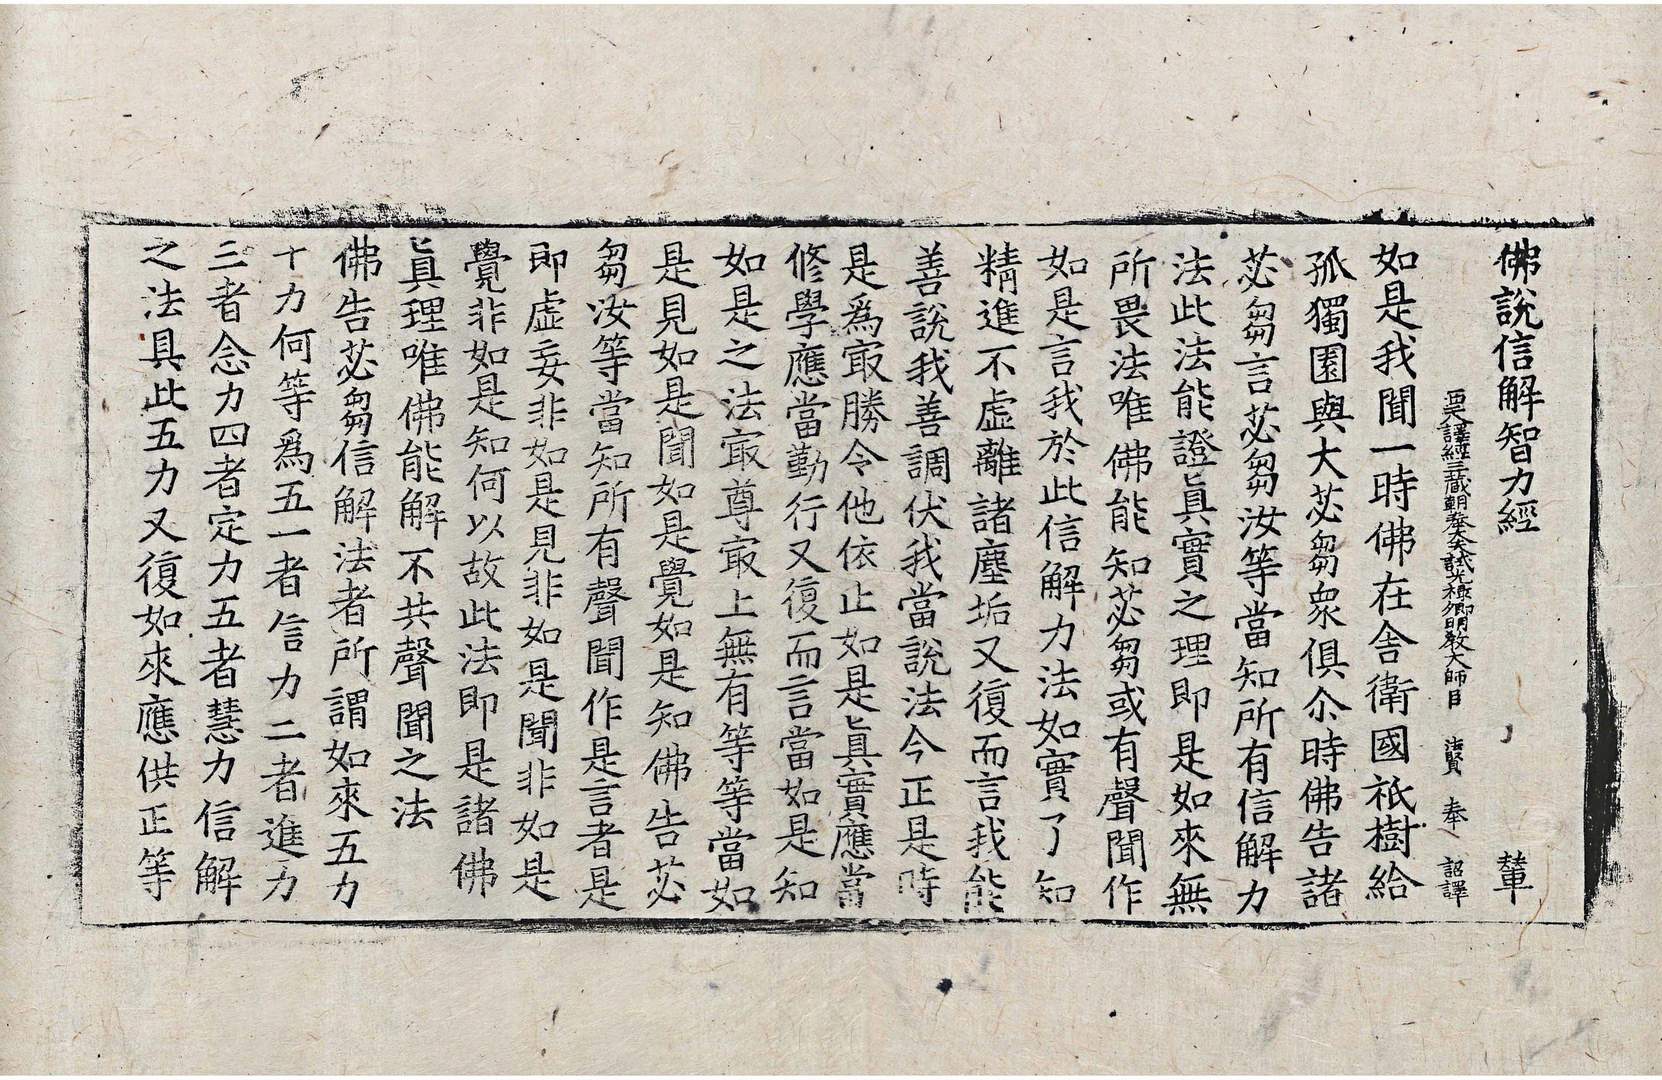 佛說信解智力經 輦
西天譯經三藏朝奉大夫試光祿卿明教大師臣 法賢 奉 詔譯
如是我聞一時佛在舍衛國祇樹給
孤獨園與大苾芻衆俱尒時佛告諸
苾芻言苾芻汝等當知所有信解力
法此法能證眞實之理即是如來無
所畏法唯佛能知苾芻或有聲聞作
如是言我於此信解力法如實了知
精進不虛離諸塵垢又復而言我能
善說我善調伏我當說法今正是時
是爲㝡勝令他依止如是眞實應當
修學應當勤行又復而言當如是知
如是之法㝡尊㝡上無有等等當如
是見如是聞如是覺如是知佛告苾
芻汝等當知所有聲聞作是言者是
即虛妄非如是見非如是聞非如是
覺非如是知何以故此法即是諸佛
眞理唯佛能解不共聲聞之法
佛告苾芻信解法者所謂如來五力
十力何等爲五一者信力二者進力
三者念力四者定力五者慧力信解
之法具此五力又復如來應供正等